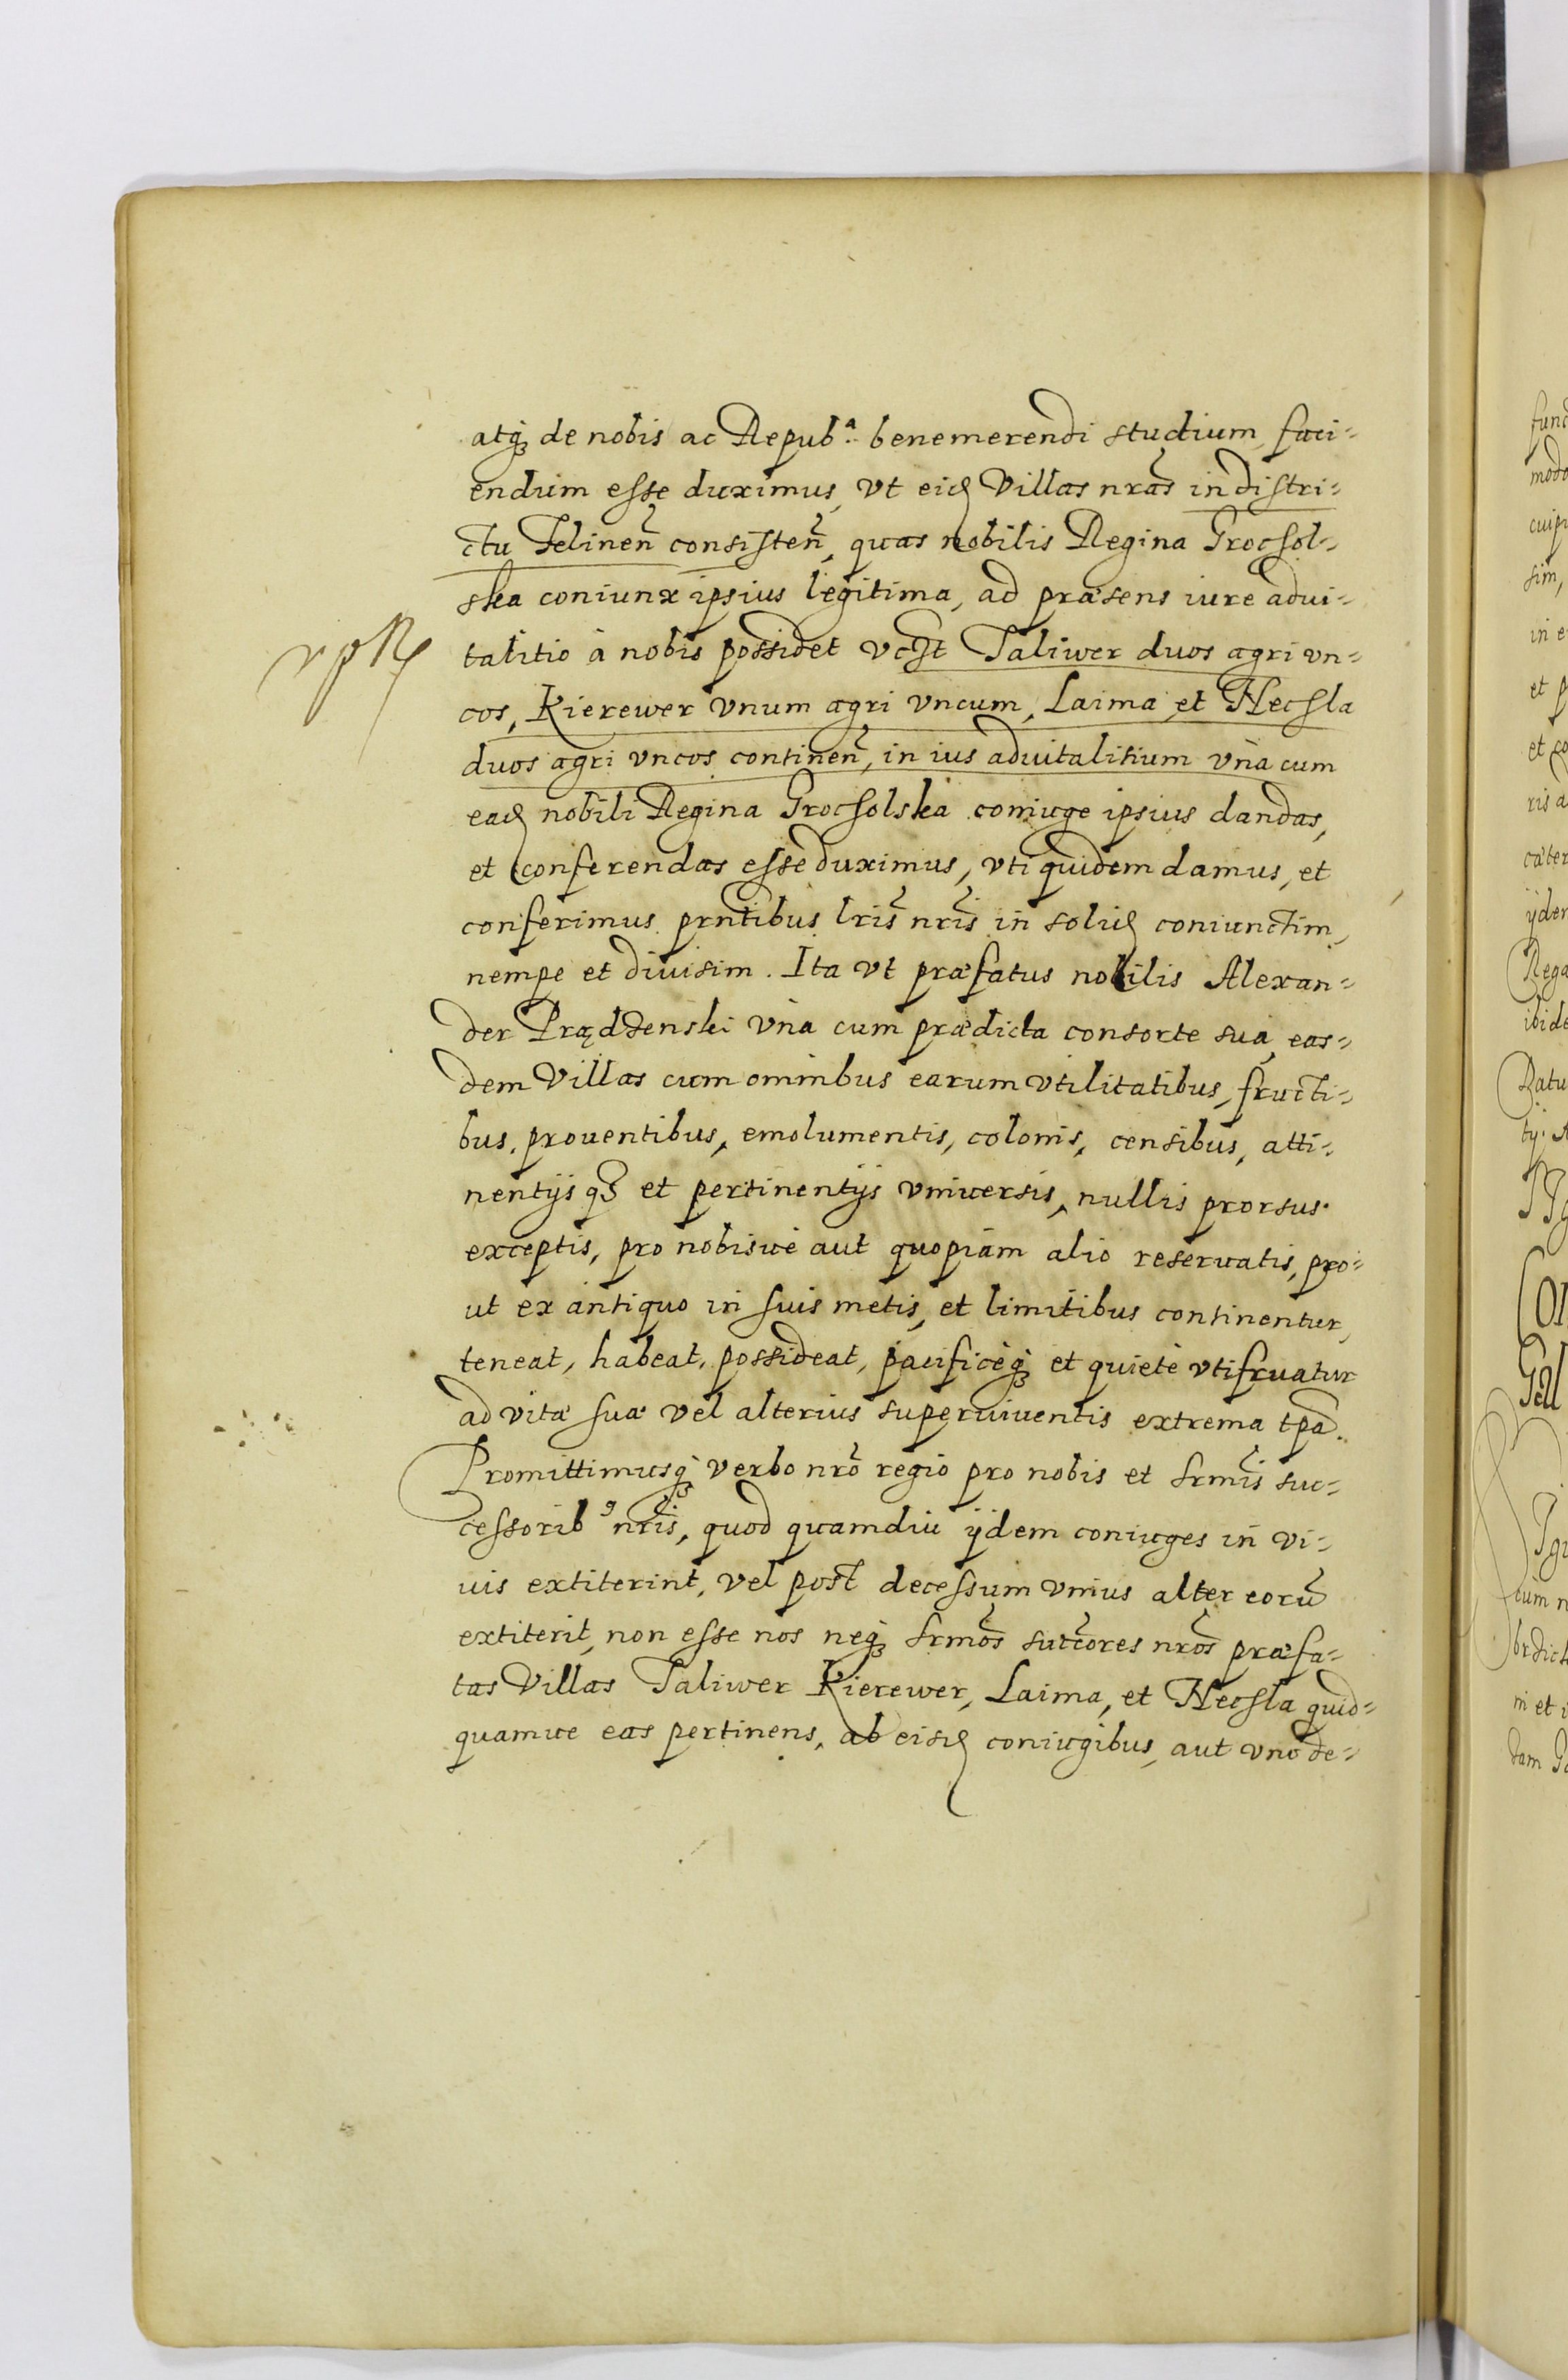 atq₃ de nobis ac Repub.ª benemerendi studium, faci=
endum esse duximus, vt eid Villas nras̃ in distri=
ctu Felineñ consisteñ, quas nobilis Regina Grochol=
ska coniunx ipsius legitima, ad præsens iure advi=
talitio à nobis possidet vc̃zt Taliwer duos agri vn=
cos, Kierewer vnum agri vncum, Laima et Hecsla
duos agri vncos contineñ, in ius advitalitium vnà cum
ead nobili Regina Grocholska coniuge ipsius dandas,
et conferendas esse duximus, vti quidem damus, et
conferimus prñtibus lris̃ nris̃ in solid coniunctim,
nempe et divisim. Ita vt præfatus nobilis Alexan=
der Prądzenski vnà cum prædicta consorte sua, eas=
dem Villas cum omnibus earum vtilitatibus, fructi=
bus, prouentibus, emolumentis, colonis, censibus, atti=
nentijs q₃ et pertinentijs vniuersis, nullis prorsus
exceptis, pro nobisue aut quopiam alio reseruatis, pro=
ut ex antiquo in suis metis, et limitibus continentur,
teneat, habeat, possideat, pacificèq₃ et quietè vtifruatur
ad vitæ suæ vel alterius superuiuentis extrema tp̃a.
Promittimusq₃ verbo nrõ regio pro nobis et Srmis̃ suc=
cessorib⁹ nris̃, quod quamdiu ijdem coniuges in vi=
uis extiterint, vel post decessum vnius alter eorũ
extiterit, non esse nos neq₃ Srmos̃ succ̃ores nros̃ præfa=
tas Villas Taliwer Kierewer, Laima, et Hecsla quid=
quamue eas pertinens, ab eisd coniugibus, aut vno de=